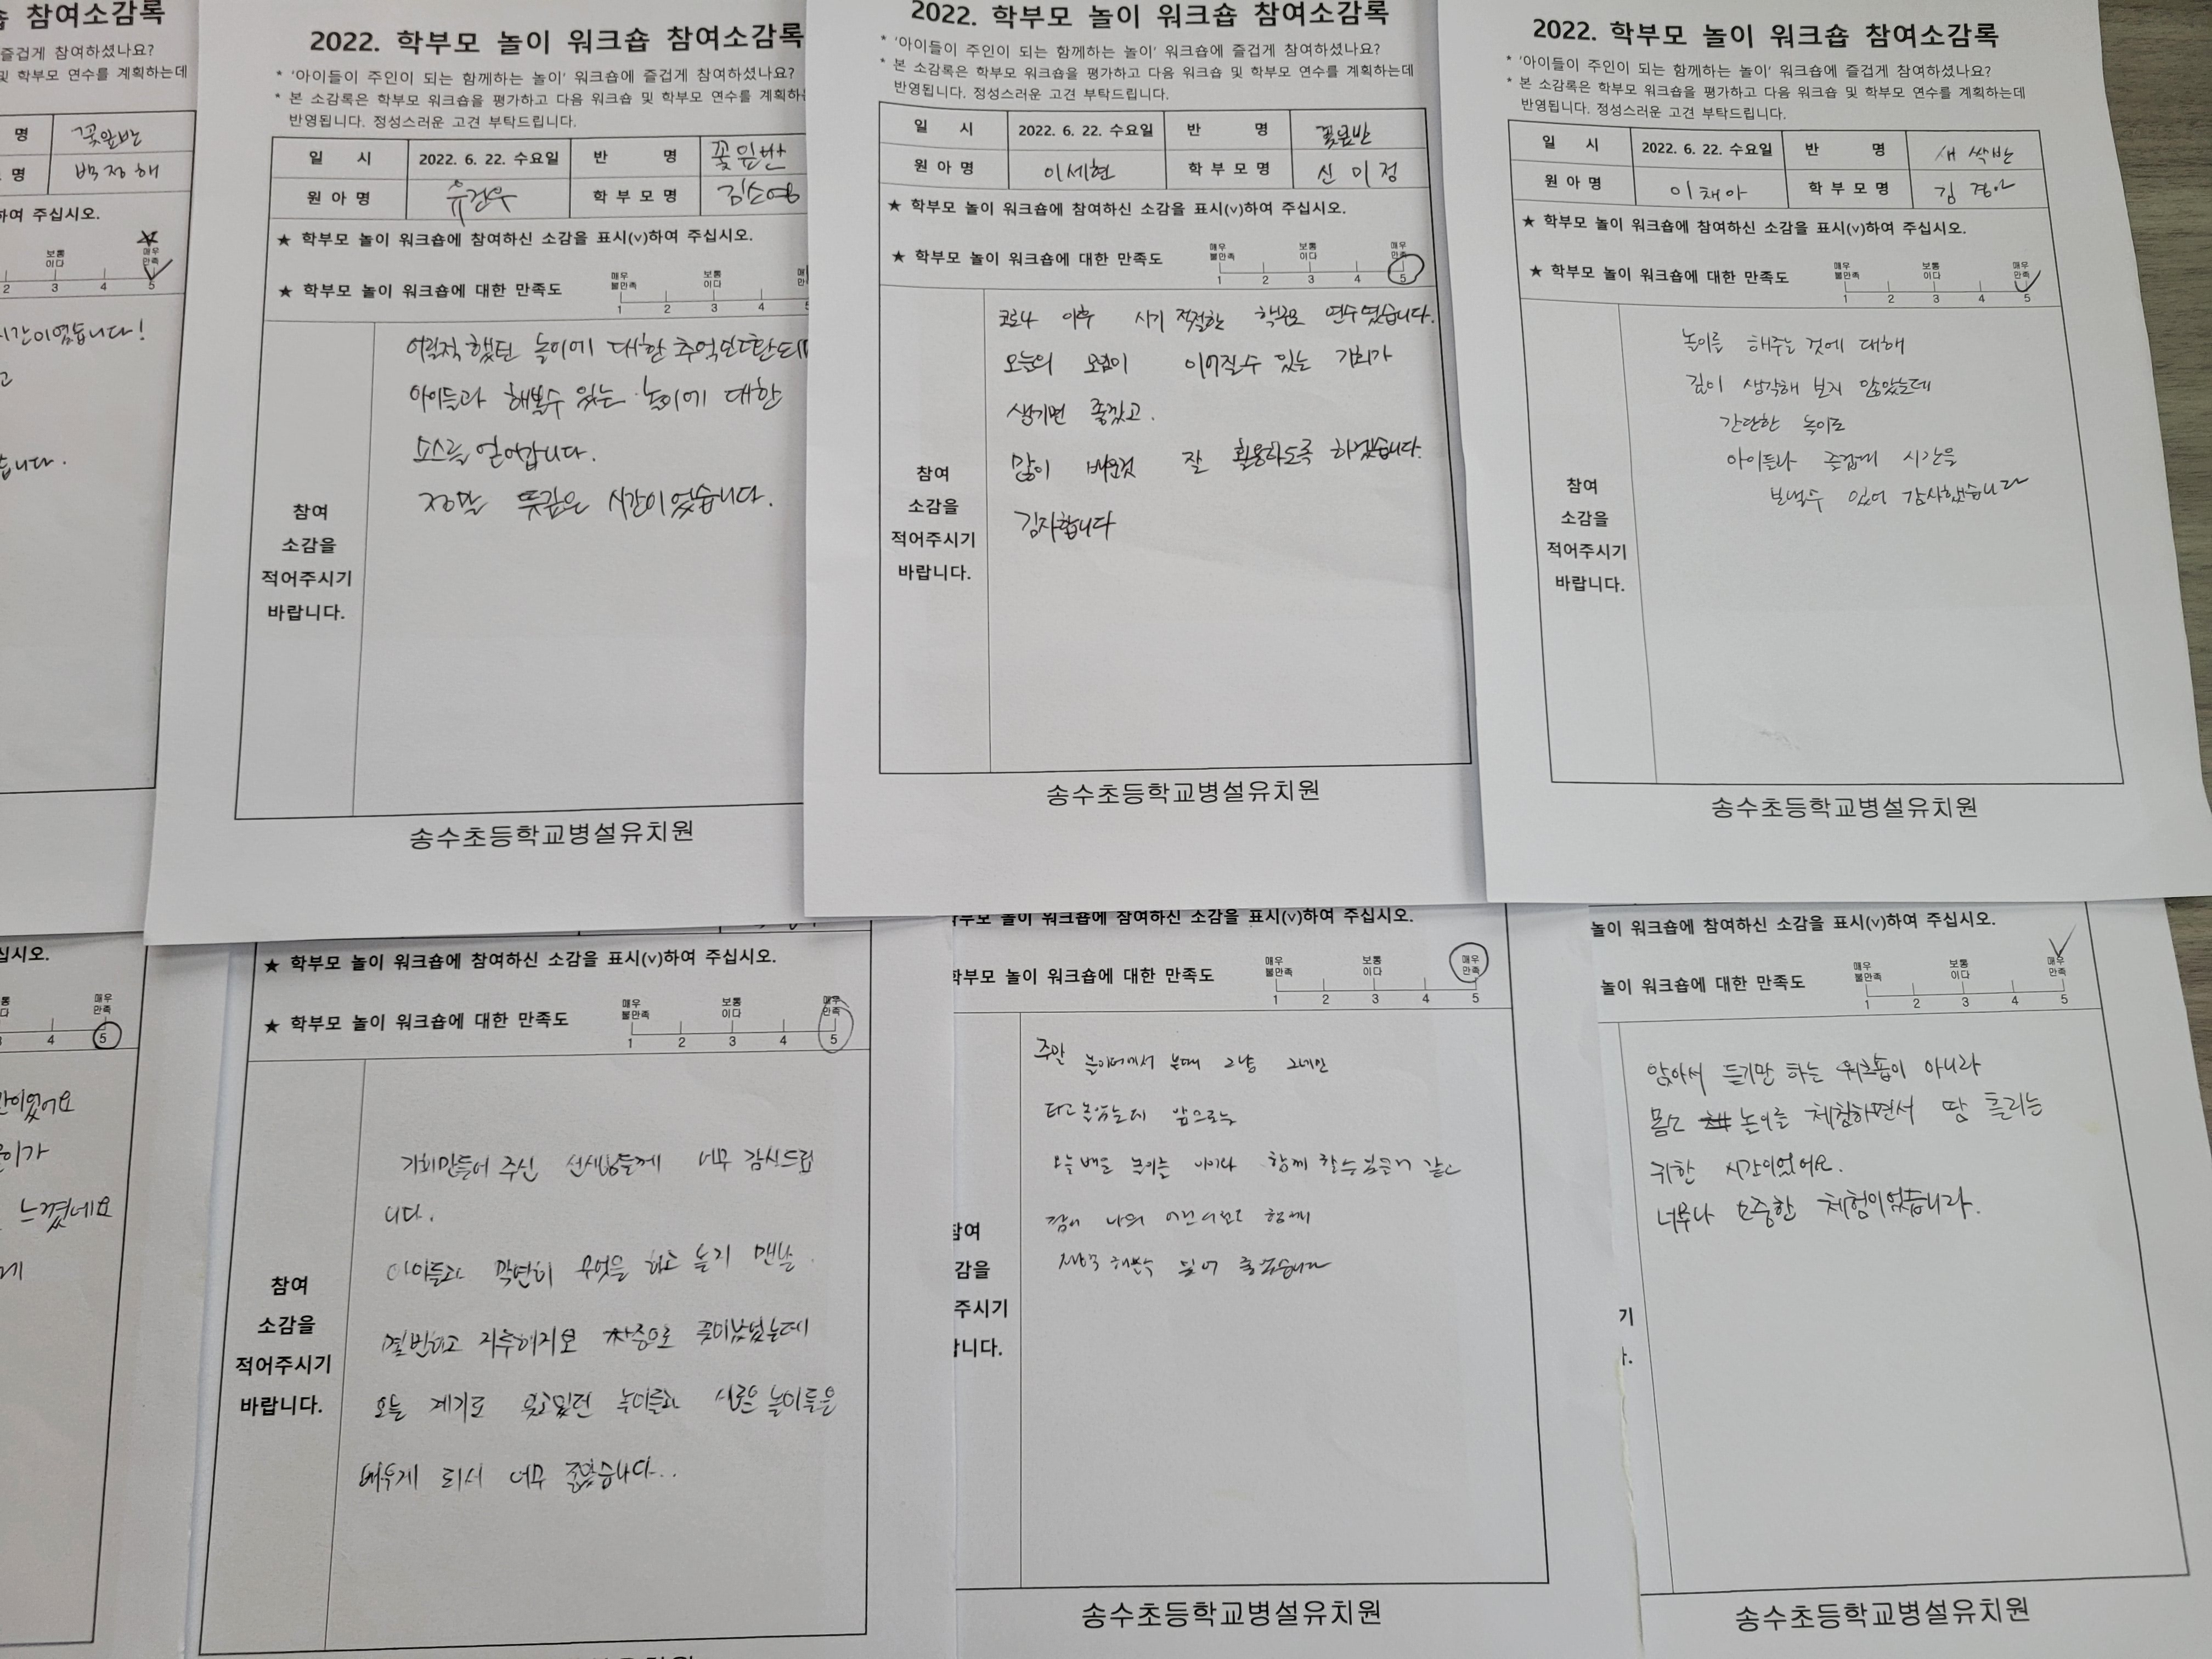 참여소감록
즐겁게 참여하셨나요?
및 학부모 연수를 계획하는데
명 꽃잎반
명 백장해
하여 주십시오.
보통
이다
매우
만족
2 3 4 5
시간이였습니다!
고
습니다.
2022. 학부모 놀이 워크숍 참여소감록
* '아이들이 주인이 되는 함께하는 놀이' 워크숍에 즐겁게 참여하셨나요?
* 본 소감록은 학부모 워크숍을 평가하고 다음 워크숍 및 학부모 연수를 계획하는
반영됩니다. 정성스러운 고견 부탁드립니다.
일 시 2022. 6. 22. 수요일 반 명 꽃잎반
원 아 명 유건우 학 부 모 명 김소영
★ 학부모 놀이 워크숍에 참여하신 소감을 표시(v)하여 주십시오.
★ 학부모 놀이 워크숍에 대한 만족도
매우
불만족
보통
이다
1 2 3 4
참여
소감을
적어주시기
바랍니다.
어릴적 했던 놀이에 대한 추억
아이들과 해볼수 있는 놀이에 대한
소스를 얻어갑니다.
정말 뜻깊은 시간이었습니다.
송수초등학교병설유치원
2022. 학부모 놀이 워크숍 참여소감록
* '아이들이 주인이 되는 함께하는 놀이' 워크숍에 즐겁게 참여하셨나요?
* 본 소감록은 학부모 워크숍을 평가하고 다음 워크숍 및 학부모 연수를 계획하는데
반영됩니다. 정성스러운 고견 부탁드립니다.
일 시 2022. 6. 22. 수요일 반 명 꽃잎반
원 아 명 이세현 학 부 모 명 신미정
★ 학부모 놀이 워크숍에 참여하신 소감을 표시(v)하여 주십시오.
★ 학부모 놀이 워크숍에 대한 만족도
매우
불만족
보통
이다
매우
만족
1 2 3 4 5
참여
소감을
적어주시기
바랍니다.
코로나 이후 시기 적절한 학부모 연수였습니다.
오늘의 모임이 이어질수 있는 기회가
생기면 좋겠고.
많이 배운것 잘 활용하도록 하겠습니다.
감사합니다
송수초등학교병설유치원
2022. 학부모 놀이 워크숍 참여소감록
* '아이들이 주인이 되는 함께하는 놀이' 워크숍에 즐겁게 참여하셨나요?
* 본 소감록은 학부모 워크숍을 평가하고 다음 워크숍 및 학부모 연수를 계획하는데
반영됩니다. 정성스러운 고견 부탁드립니다.
일 시 2022. 6. 22. 수요일 반 명 새싹반
원 아 명 이채아 학 부 모 명 김경아
★ 학부모 놀이 워크숍에 참여하신 소감을 표시(v)하여 주십시오.
★ 학부모 놀이 워크숍에 대한 만족도
매우
불만족
보통
이다
매우
만족
1 2 3 4 5
참여
소감을
적어주시기
바랍니다.
놀이를 해주는 것에 대해
깊이 생각해 보지 않았는데
간단한 놀이로
아이들과 즐겁게 시간을
보낼수 있어 감사했습니다
송수초등학교병설유치원
십시오.
매우
만족
4 5
이었어요
이가
느꼈네요
게
★ 학부모 놀이 워크숍에 참여하신 소감을 표시(v)하여 주십시오.
★ 학부모 놀이 워크숍에 대한 만족도
매우
불만족
보통
이다
매우
만족
1 2 3 4 5
참여
소감을
적어주시기
바랍니다.
기회만들어 주신 선생님들께 너무 감사드립
니다.
아이들과 막연히 무엇을 하고 놀지 맨날
오늘 계기로 잊고있던 놀이들과 새로운 놀이들을
배우게 되서 너무 좋았습니다...
학부모 놀이 워크숍에 참여하신 소감을 표시(v)하여 주십시오.
학부모 놀이 워크숍에 대한 만족도
매우
불만족
보통
이다
매우
만족
1 2 3 4 5
참여
감을
주시기
랍니다.
주말 놀이터에서 놀때 그냥 그네만
타고 놀았는데 앞으로는
오늘 배운 놀이를 아이와 함께 할수 있을거 같고
나의 어린시절도 함께
해볼수 있어 좋았습니다
송수초등학교병설유치원
놀이 워크숍에 참여하신 소감을 표시(v)하여 주십시오.
놀이 워크숍에 대한 만족도
매우
불만족
보통
이다
매우
만족
1 2 3 4 5
기
앉아서 듣기만 하는 워크숍이 아니라
몸소 놀이를 체험하면서 땀 흘리는
귀한 시간이었어요.
너무나 소중한 체험이었습니다.
송수초등학교병설유치원